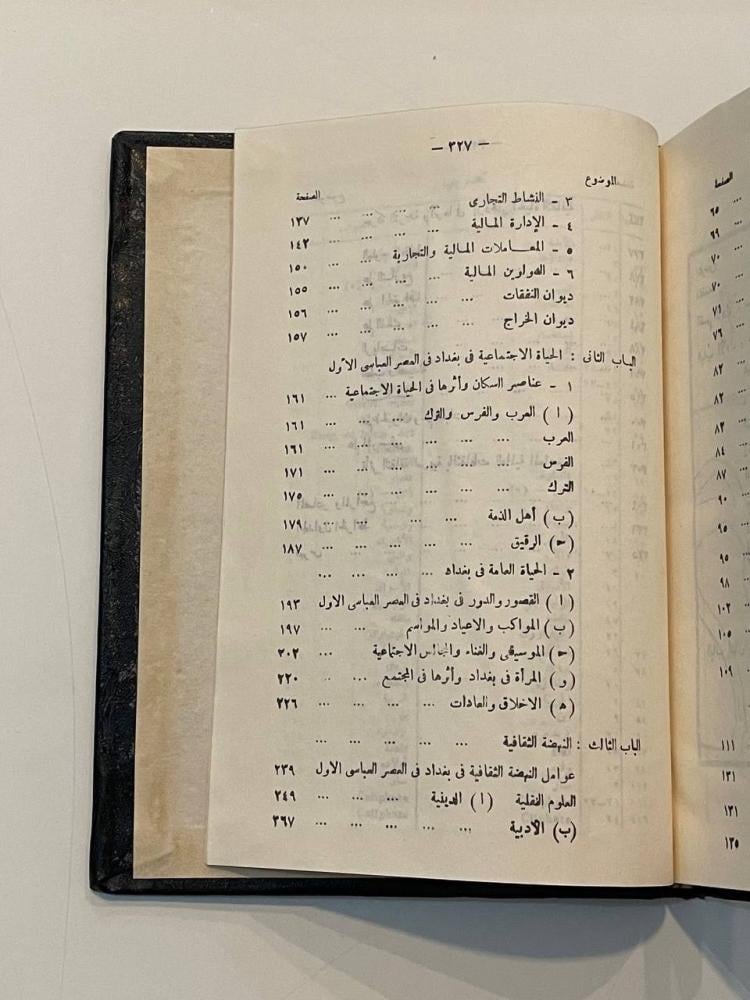 الصفحة
٦٥
٦٩
٧٠
٧٠
٧١
٧٦
٨٢
٨٢
٨٣
٨٤
٨٧
٩٠
٩٥
٩٥
٩٨
١٠٢
١٠٥
١٠٩
١١١
١٣١
١٣١
١٣٥
— ٣٢٧ —
الموضوع الصفحة
٣ - النشاط التجارى ... ... ... ... ١٣٧
٤ - الإدارة المالية ... ... ... ... ١٤٢
٥ - المعـــاملات المالية والتجارية ... ... ١٥٠
٦ - الدواوين المالية ... ... ... ... ١٥٥
ديوان النفقات ... ... ... ... ١٥٦
ديوان الخراج ... ... ... ... ١٥٧
الباب الثانى : الحياة الاجتماعية فى بغداد فى العصر العباسى الأول
١ - عناصر السكان وأثرها فى الحياة الاجتماعية ... ١٦١
( ا ) العرب والفرس والترك ... ... ... ١٦١
العرب ... ... ... ... ... ١٦١
الفرس ... ... ... ... ... ١٧١
الترك ... ... ... ... ... ١٧٥
(ب) أهل الذمة ... ... ... ... ١٧٩
(ح) الرقيق ... ... ... ... ... ١٨٧
٢ - الحياة العامة فى بغداد ... ... ... ...
( ا ) القصور والدور فى بغداد فى العصر العباسى الأول ١٩٣
(ب) المواكب والاعياد والمواسم ... ... ... ١٩٧
(ح) الموسيقى والغناء والمجالس الاجتماعية ... ٢٠٢
(و) المرأة فى بغداد وأثرها فى المجتمع ... ... ٢٢٠
(ه) الاخلاق والعادات ... ... ... ... ٢٢٦
الباب الثالث : النهضة الثقافية ... ... ... ... ...
عوامل النهضة الثقافية فى بغداد فى العصر العباسى الأول ٢٣٩
العلوم النقلية ( ا ) الدينية ... ... ... ٢٤٩
(ب) الأدبية ... ... ... ... ... ٢٦٧